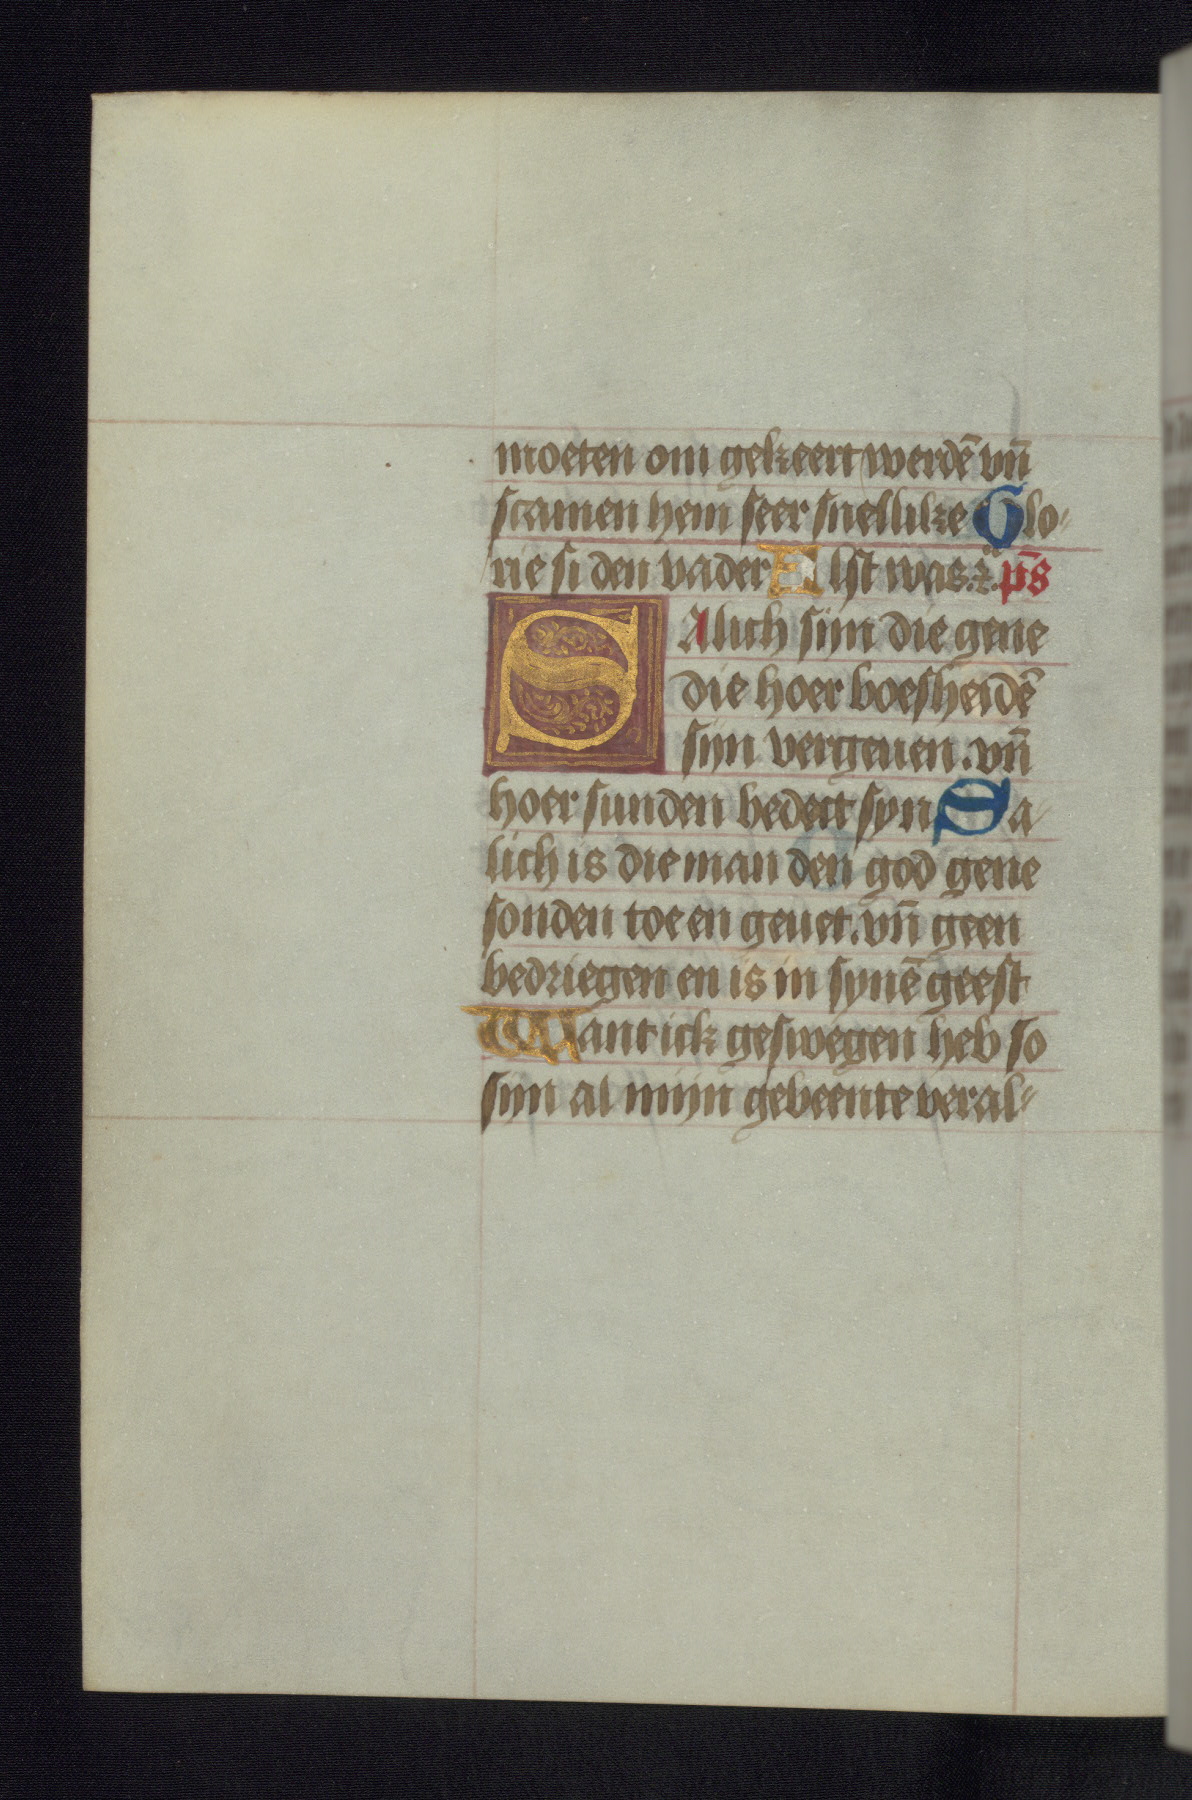 moeten om gekeert werdē vn̄
scamen hem seer snellike Glo-
rie si den vader Elst was. ⁊. ps̄
SAlich sijn die gene
die hoer boesheidē
sijn vergeuen. vn̄
hoer sunden bedect syn Sa-
lich is die man den god gene
sonden toe en geuet. vn̄ geen
bedriegen en is in synē geest
Want ick geswegen heb so
sijn al mijn gebeente veral-